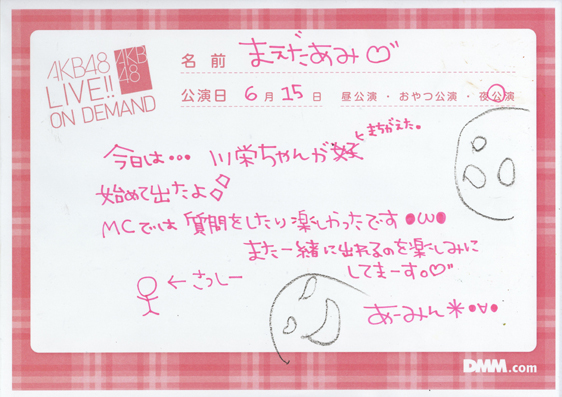 AKB48
LIVE!!
ON DEMAND
AKB
48
名前 まえだあみ♡
公演日 6月15日 昼公演・おやつ公演・夜公演
←まちがえた。
今日は… 川栄ちゃんが
始めて出たよ
MCでは質問をしたり楽しかったです●ω●
また一緒に出れるのを楽しみに
してまーす。♡
←さっしー
あーみん＊•∀•
DMM.com